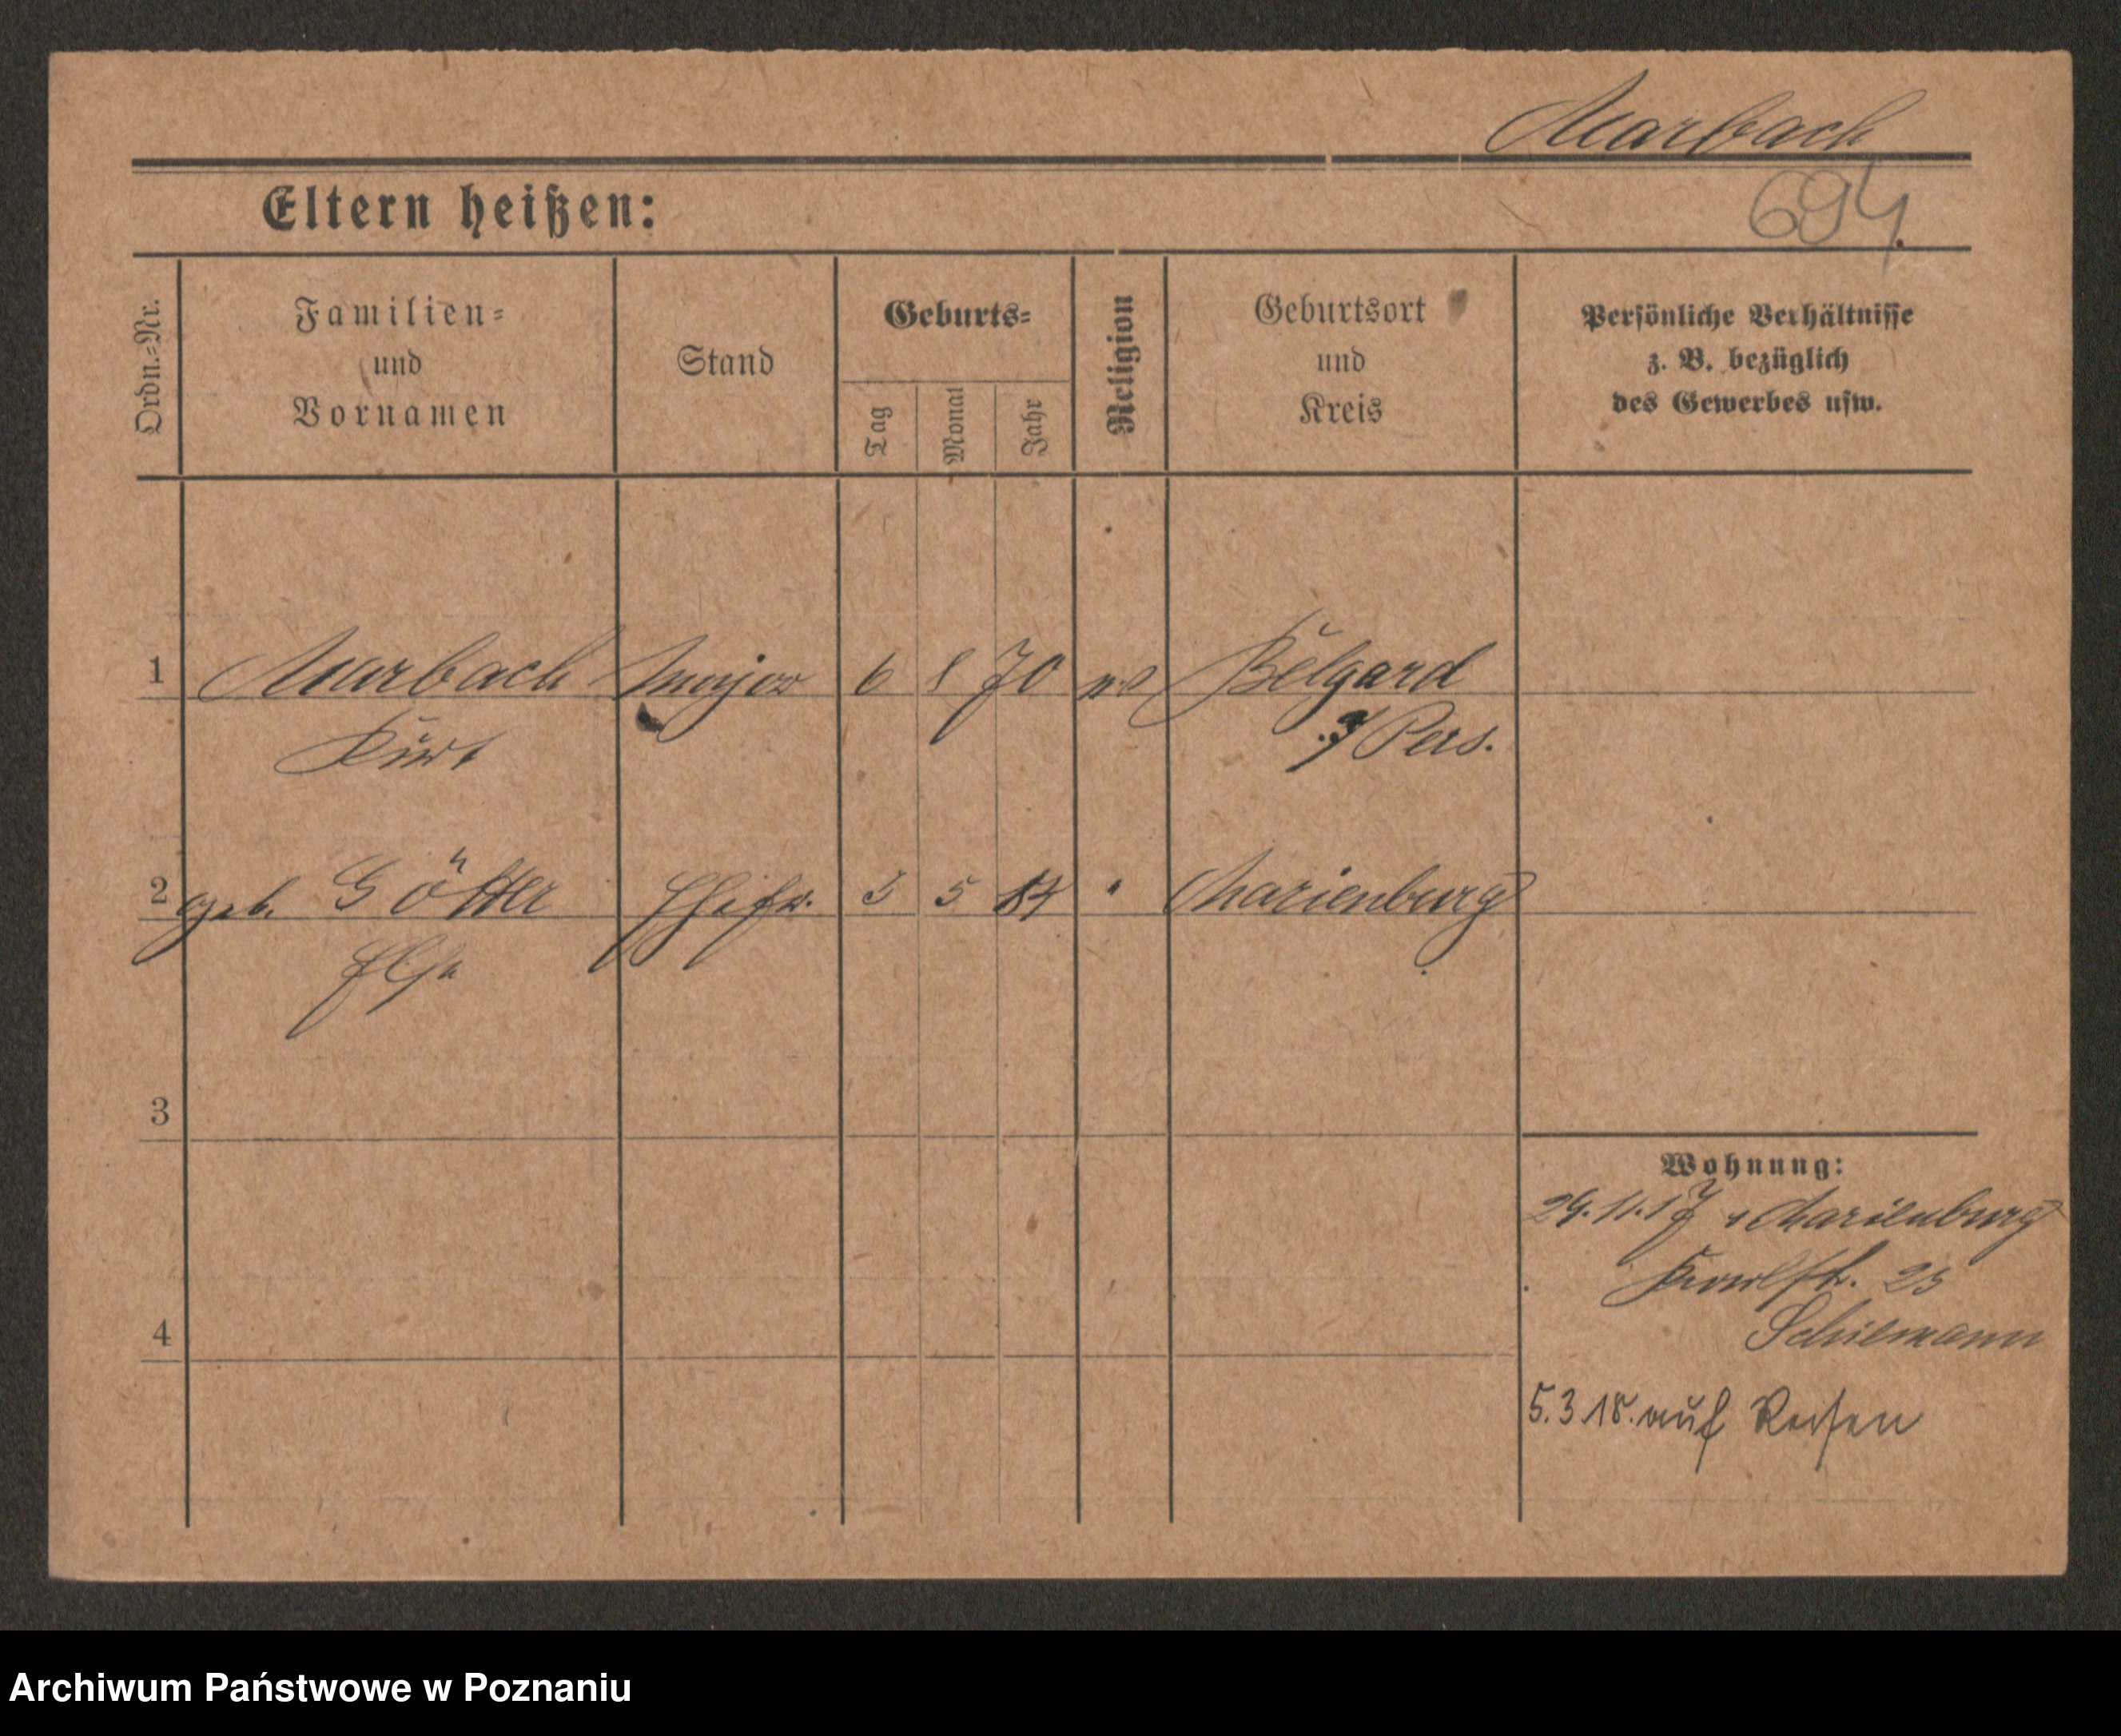 Marbach
694.
Eltern heißen:
Ordn.-Nr.
Familien-
und
Vornamen
Stand
Geburts-
Tag
Monat
Jahr
Religion
Geburtsort
und
Kreis
Persönliche Verhältnisse
z. B. bezüglich
des Gewerbes usw.
1 Marbach Major 6 1 70 Belgard
Kurt /Pers.
2 geb. Götter Ehefr. 5 5 84 " Marienburg
Elsa
3
4
Wohnung:
29.11.17 v Marienburg
25
Schiemann
5.3.18. auf Reisen
Archiwum Państwowe w Poznaniu